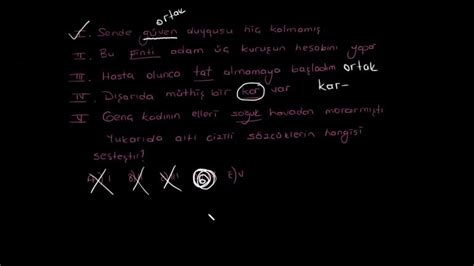 ortak
I. Sende güven duygusu hiç kalmamış
II. Bu pinti adam üç kuruşun hesabını yapar
III. Hasta olunca tat almamaya başladım ortak
IV. Dışarıda müthiş bir kar var kar-
V. Genç kadının elleri soğuk havadan morarmıştı
Yukarıda altı çizili sözcüklerin hangisi
sesteştir?
E) V